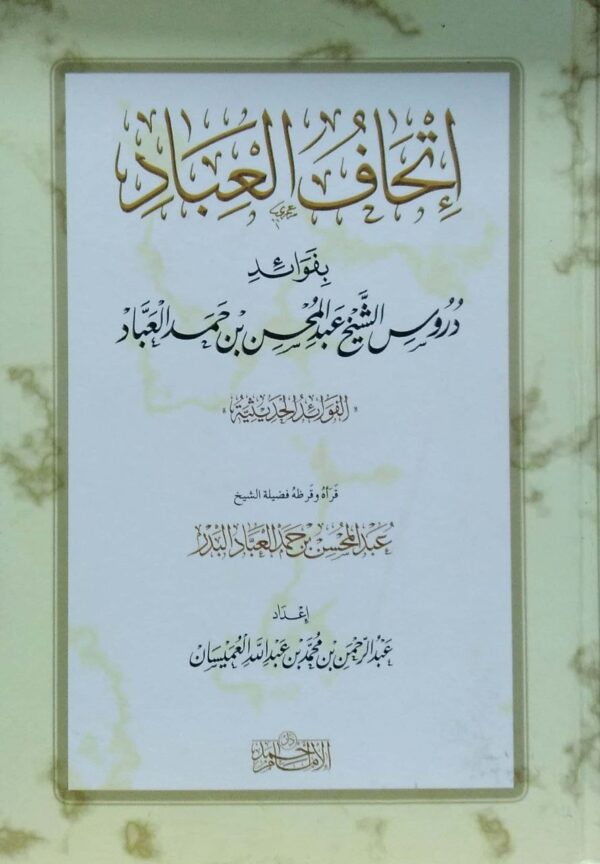 إِتْحَافُ الْعِبَادِ
بِفَوَائِدِ
دُرُوسِ الشَّيْخِ عَبْدِ الْمُحْسِنِ بْنِ حَمَدِ الْعَبَّادِ
«الفَوَائِدُ الحَدِيثِيَّةُ»
قَرَأَهُ وَقَرَّظَهُ فَضِيلَة الشيخ
عَبْدُ الْمُحْسِن بْن حَمَد الْعَبَّاد الْبَدْر
إِعْدَاد
عَبْدُ الرَّحْمَنِ بْنِ مُحَمَّدِ بْنِ عَبْدِ اللَّهِ الْعُمَيْسَان
دار الإمام أحمد